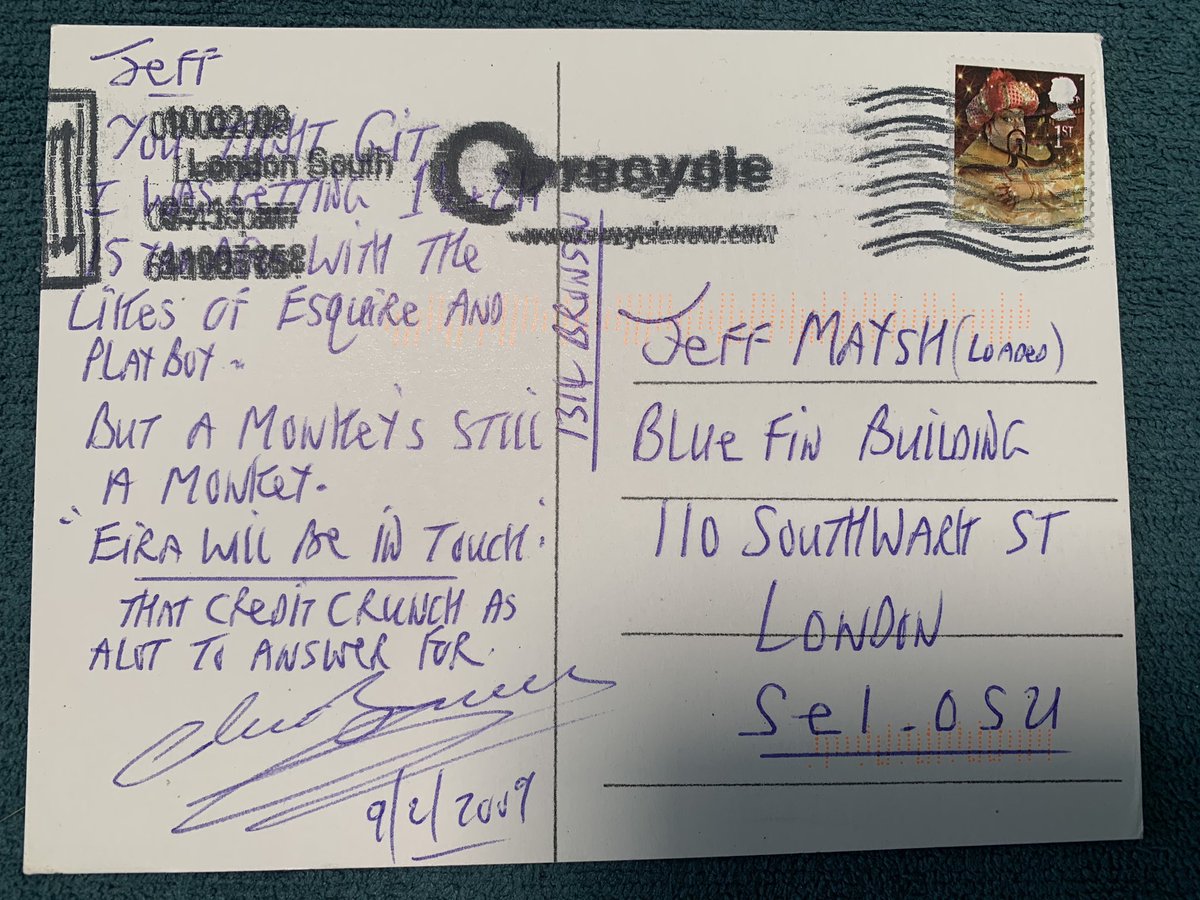 Jeff
10.02.09
YOU TIGHT GIT
London South
I WAS GETTING
recycle
WITH THE
LIKES OF ESQUIRE AND
PLAYBOY -
BUT A MONKEY'S STILL
A MONKEY.
"EIRA WILL BE IN TOUCH."
THAT CREDIT CRUNCH AS
ALOT TO ANSWER FOR.
9/2/2009
1314 BRONSON
1ST
Jeff MAYSH (LOADED)
BLUE FIN BUILDING
110 SOUTHWARK ST
LONDON
Se1-0SU